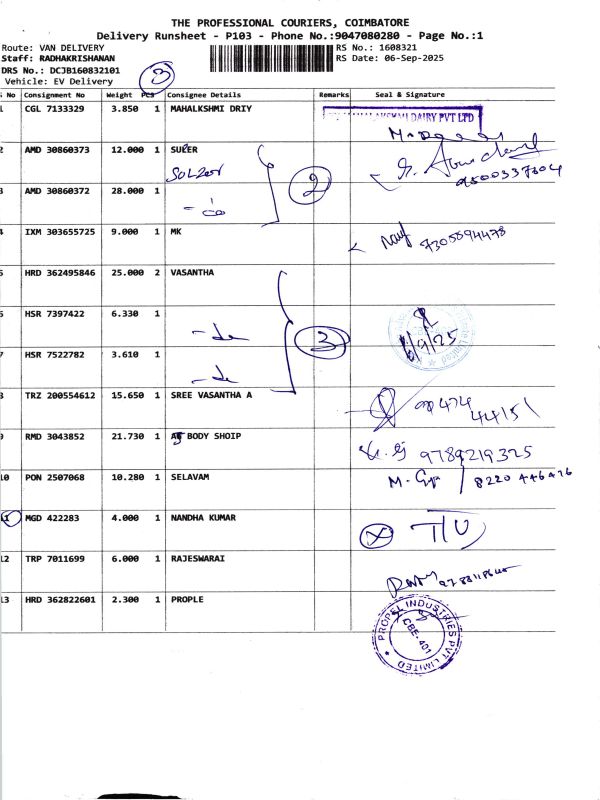 THE PROFESSIONAL COURIERS, COIMBATORE
Delivery Runsheet - P103 - Phone No.:9047080280 - Page No.:1
Route: VAN DELIVERY
RS No.: 1608321
Staff: RADHAKRISHANAN
RS Date: 06-Sep-2025
DRS No.: DCJB160832101
Vehicle: EV Delivery
3
No Consignment No Weight PCS Consignee Details Remarks Seal & Signature
CGL 7133329 3.850 1 MAHALKSHMI DRIY
DAIRY PVT LTD
2 AMD 30860373 12.000 1 SULER
9500337604
3 AMD 30860372 28.000 1
2
4 IXM 303655725 9.000 1 MK
7305594478
HRD 362495846 25.000 2 VASANTHA
HSR 7397422 6.330 1
3
6/9/25
7 HSR 7522782 3.610 1
8 TRZ 200554612 15.650 1 SREE VASANTHA A
474
44151
RMD 3043852 21.730 1 BODY SHOIP
9789219325
10 PON 2507068 10.280 1 SELAVAM
8220 446476
11 MGD 422283 4.000 1 NANDHA KUMAR
12 TRP 7011699 6.000 1 RAJESWARAI
13 HRD 362822601 2.300 1 PROPLE
PROPEL INDUSTRIES PVT LIMITED
CBE-401